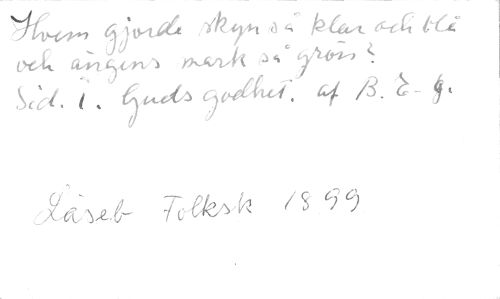 Hvem gjorde skyn så klar och blå
och ängens mark så grön?
Sid. 1. Guds godhet. af B. E-g.
Läseb Folksk 1899